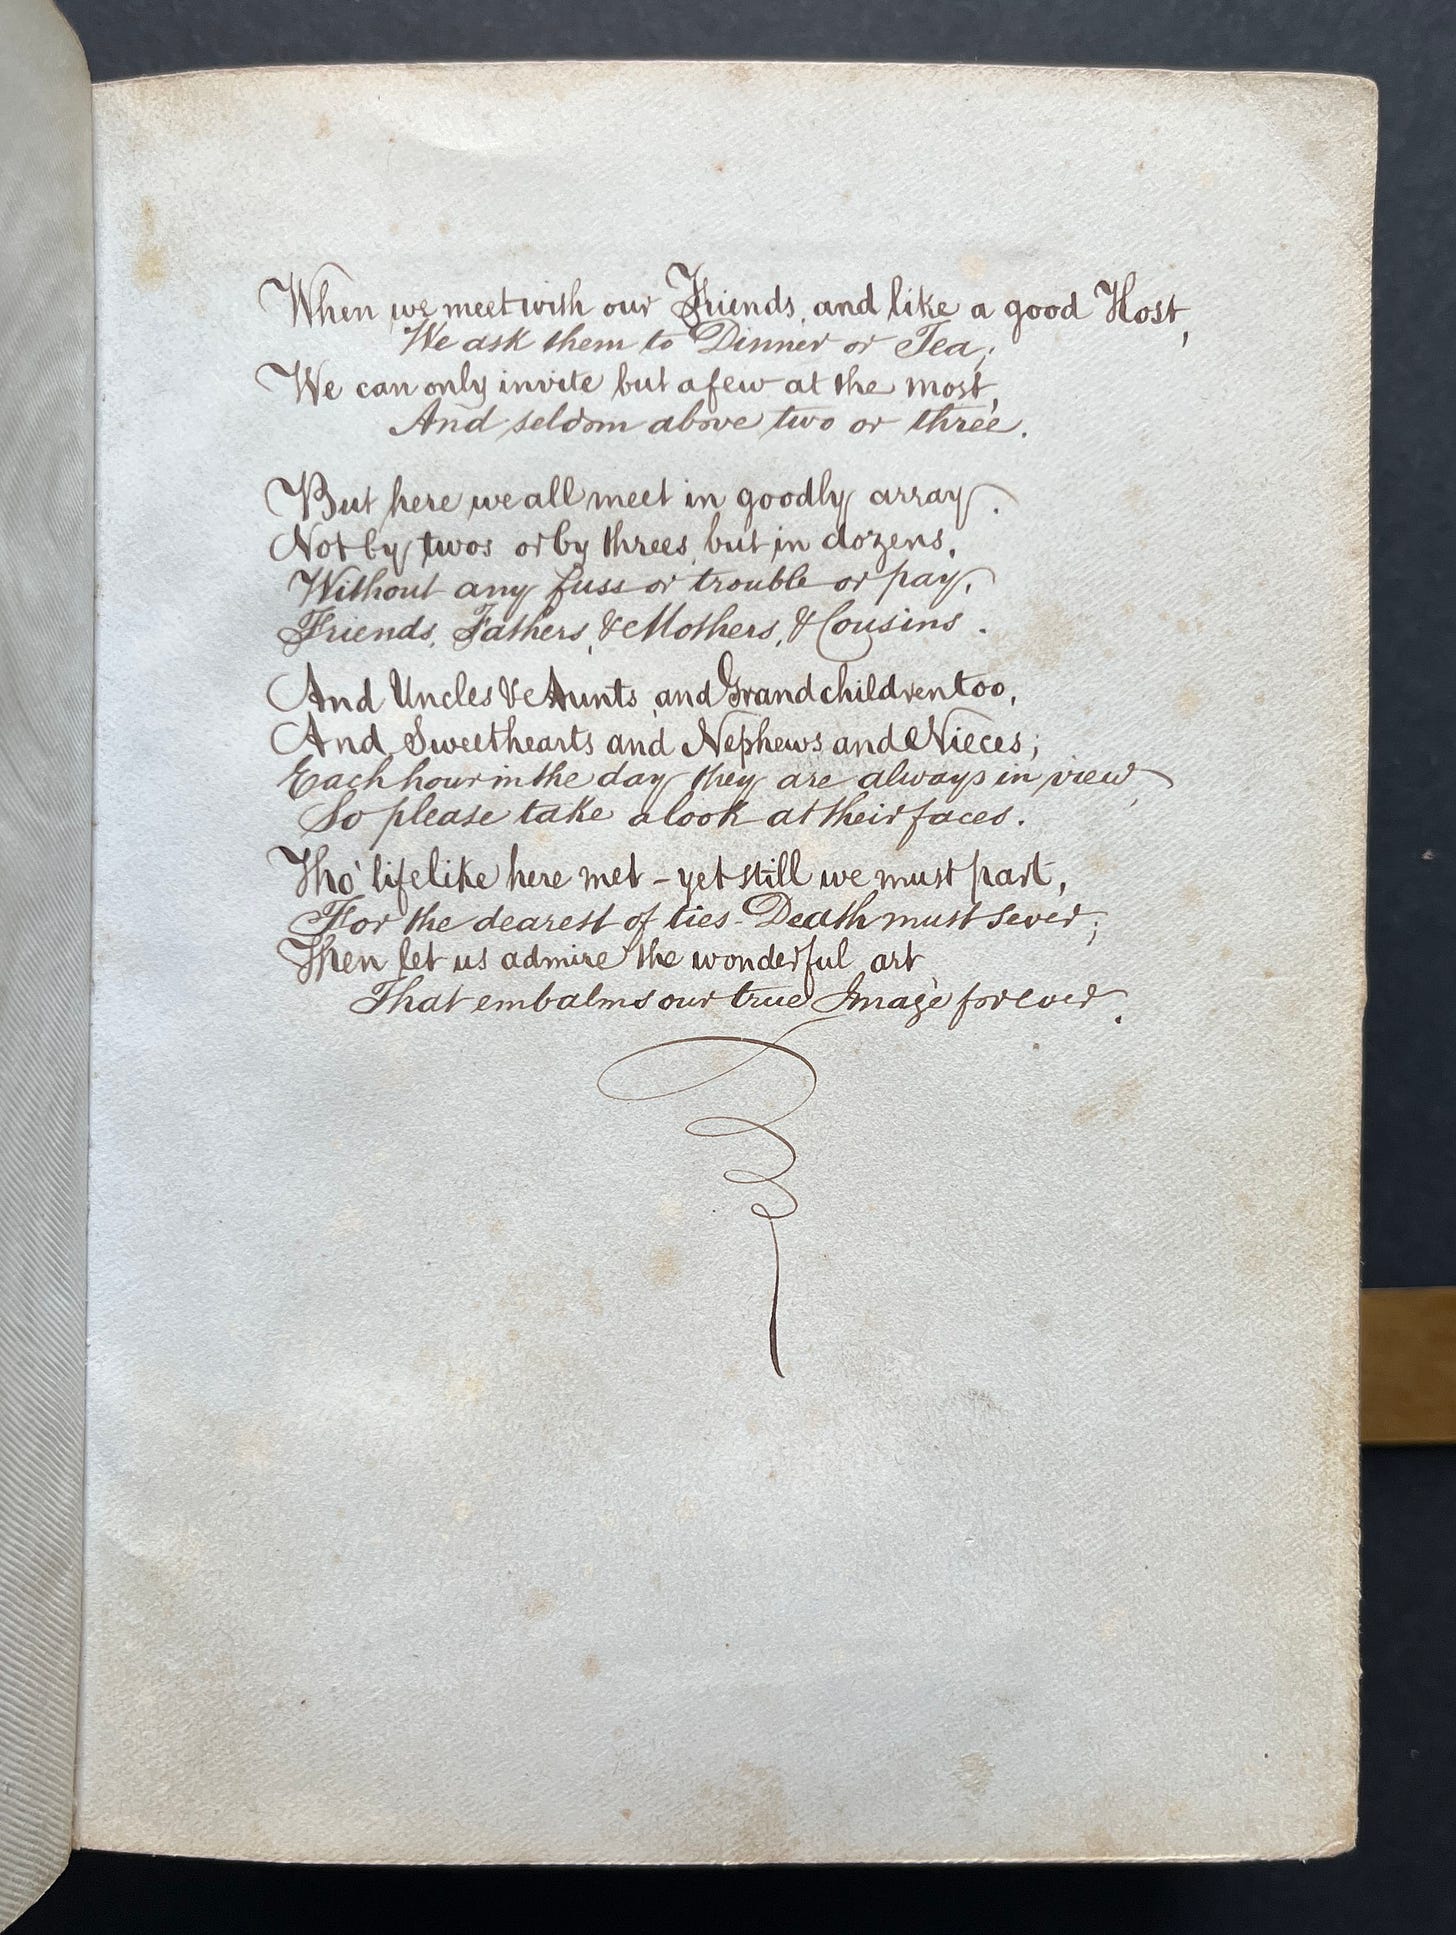 When we meet with our Friends, and like a good Host,
We ask them to Dinner or Tea;
We can only invite but a few at the most,
And seldom above two or three.
But here we all meet in goodly array.
Not by twos or by threes, but in dozens,
Without any fuss or trouble or pay,
Friends, Fathers, & Mothers, & Cousins.
And Uncles & Aunts, and Grandchildren too,
And Sweethearts and Nephews and Nieces;
Each hour in the day they are always in view,
So please take a look at their faces.
Tho' lifelike here met - yet still we must part,
For the dearest of ties - Death must sever;
Then let us admire the wonderful art
That embalms our true Image forever.